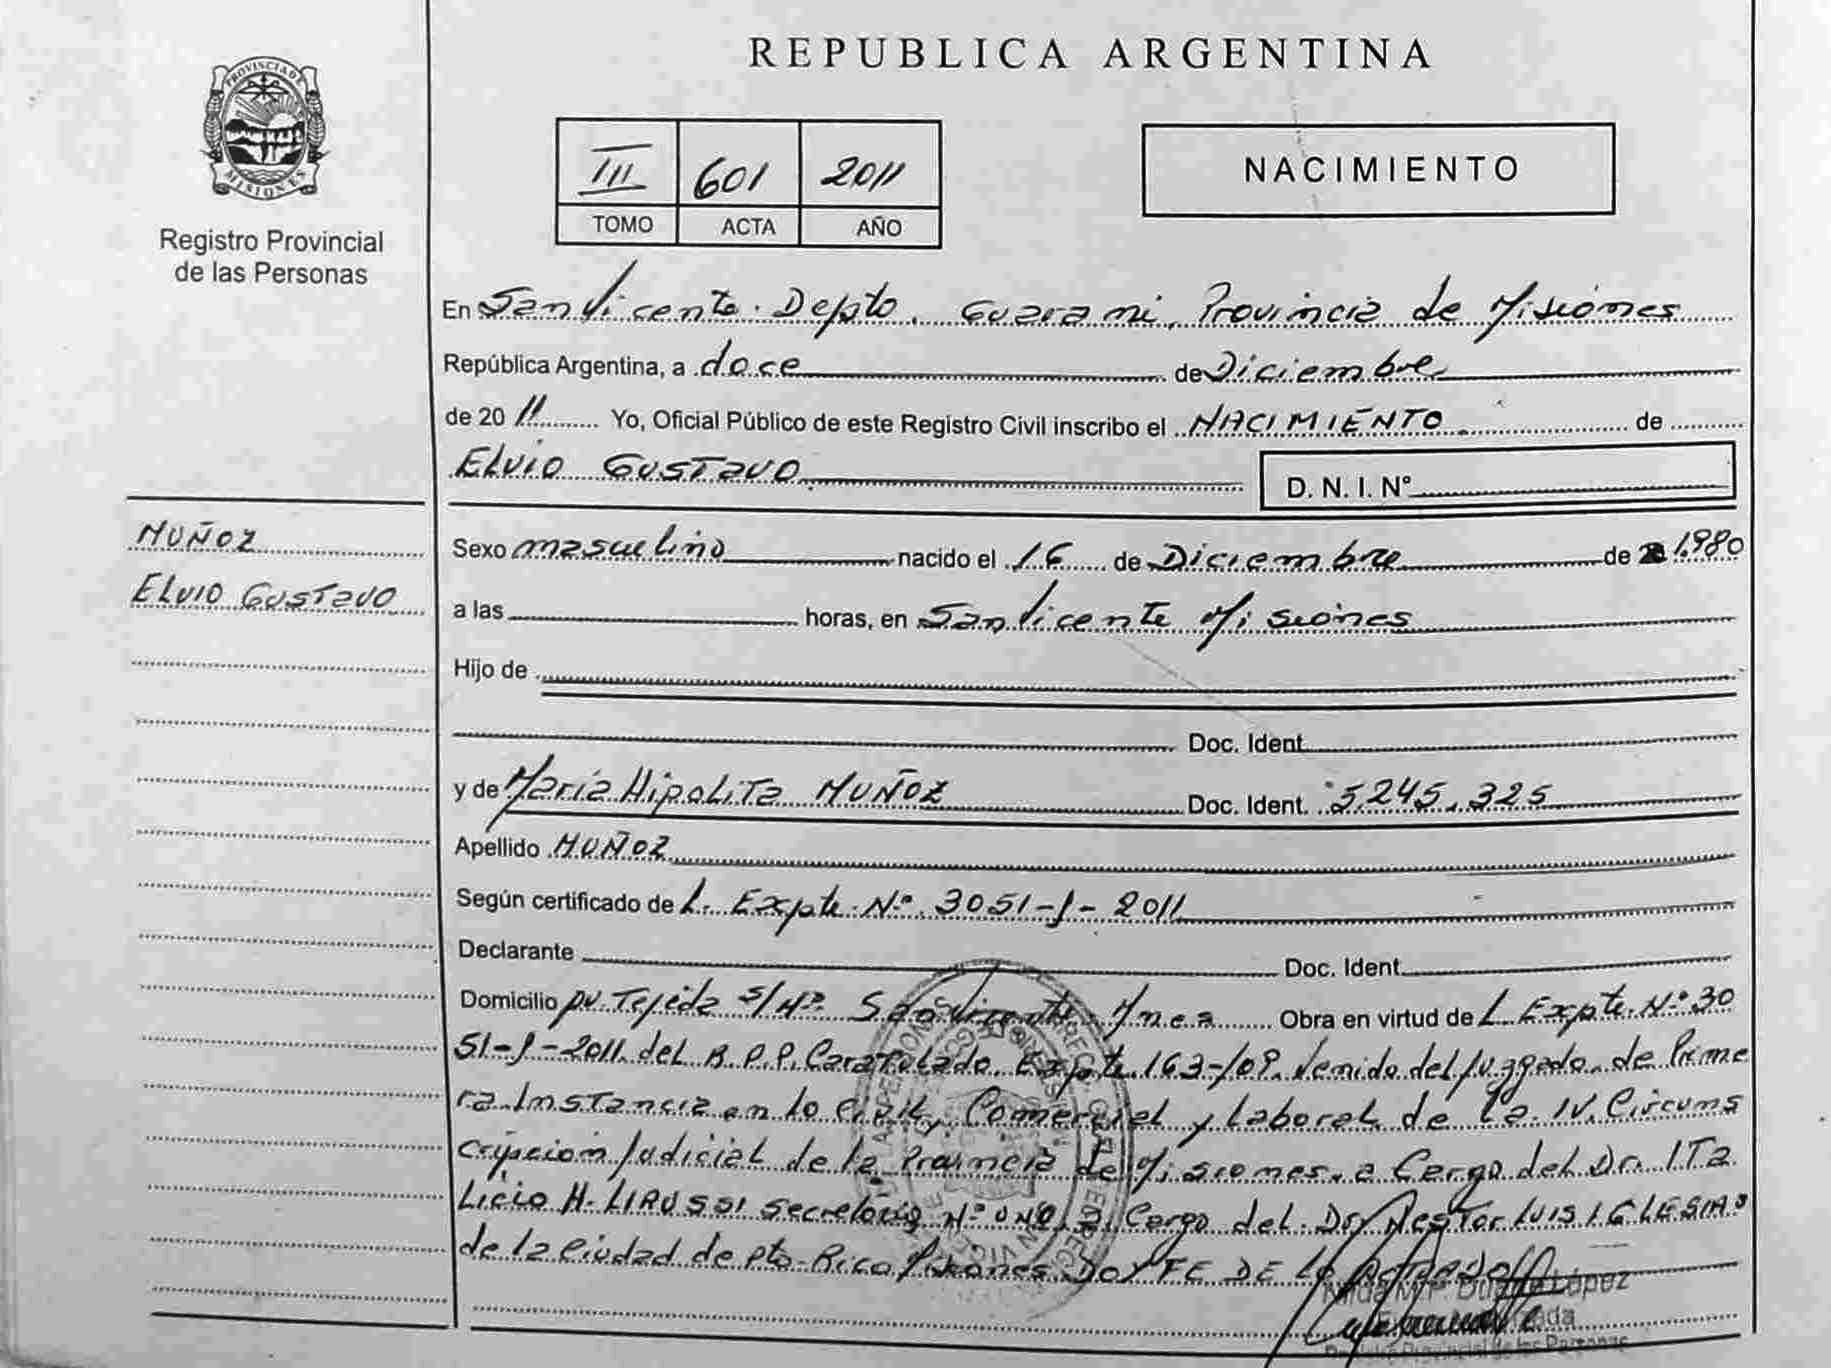 PROVINCIA DE
MISIONES
Registro Provincial
de las Personas
REPUBLICA ARGENTINA
III 601 2011
TOMO ACTA AÑO
NACIMIENTO
En San Vicente. Depto. Guarami, Provincia de Misiones
República Argentina, a doce de Diciembre
de 20 11 Yo, Oficial Público de este Registro Civil inscribo el NACIMIENTO de
ELVIO GUSTAVO
D. N. I. N°
MUÑOZ
ELVIO GUSTAVO
Sexo masculino nacido el 16 de Diciembre de 1.980
a las horas, en San Vicente Misiones
Hijo de
Doc. Ident.
y de Maria Hipolita MUÑOZ Doc. Ident. 5245.325
Apellido MUÑOZ
Según certificado de L. Expte. N° 3051-J-2011
Declarante Doc. Ident.
Domicilio pv. Tejeda S/Nº San Vicente Mnes Obra en virtud de L. Expte. N° 30
51-J-2011 del R.P.P. Caratulado Expte 163-/09. Venido del juzgado de Prime
ra Instancia en lo Civil, Comercial y Laboral de la IV Circuns
cripcion Judicial de la Provincia de Misiones, a Cargo del Dr. ITA
LICIO H. LIRUSSI Secretaria N° UNO, a Cargo del Dr. NESTOR LUIS IGLESIAS
de la Ciudad de Pto. Rico Misiones DOY FE DE LO ACTUADO
López
Provincial de las Personas